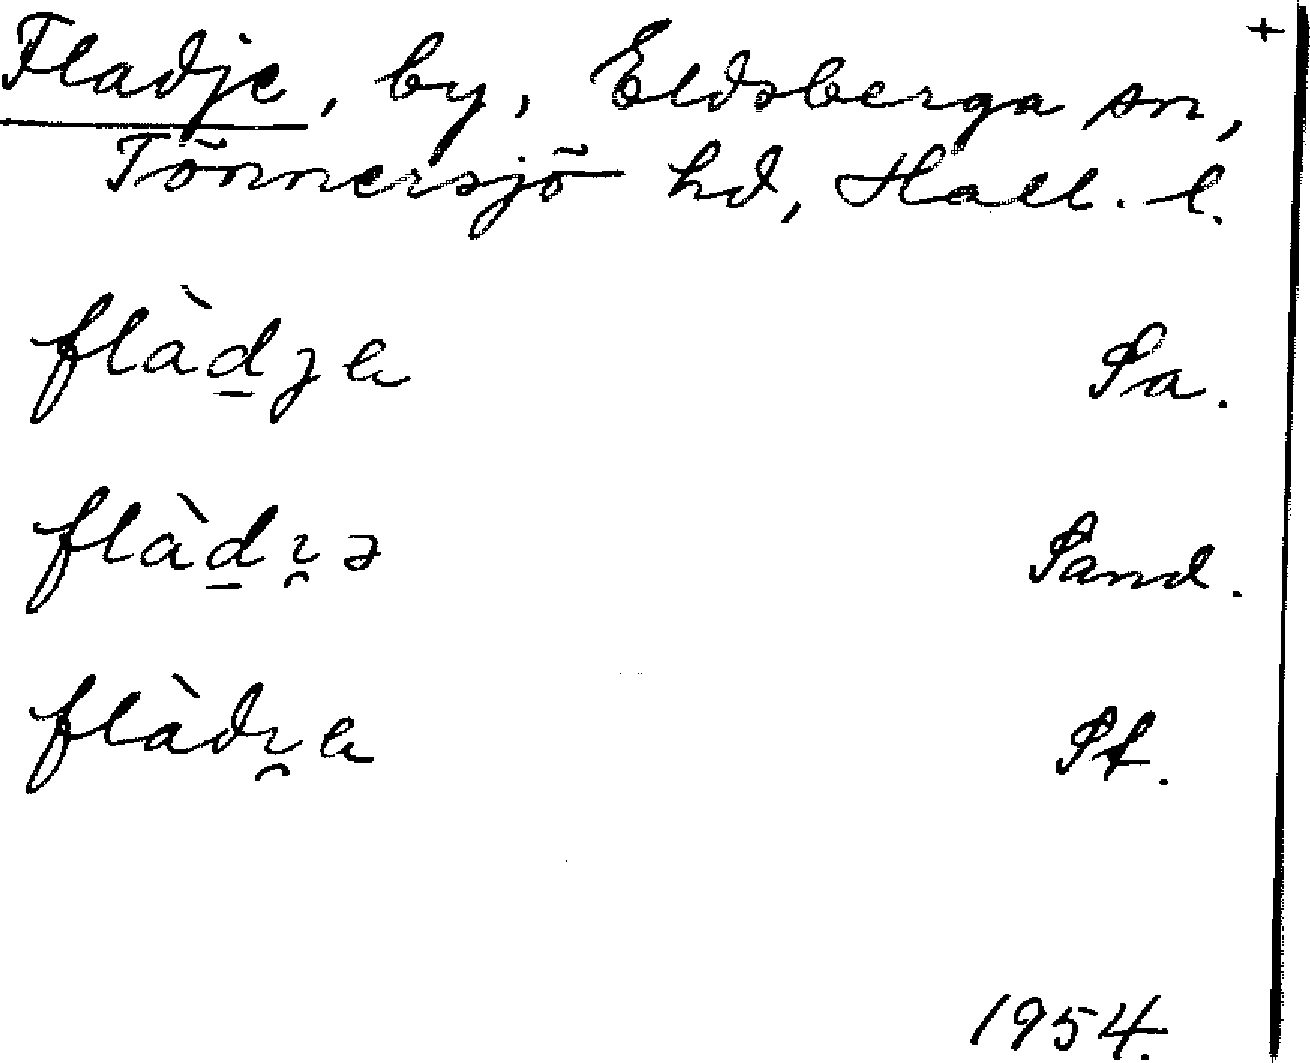 +
Fladje, by, Eldsberga sn,
Tönnersjö hd, Hall. l.
flàd̠ȷɐ Sa.
flàd̠ı̯ə Sand.
flàdı̯ɐ St.
1954.